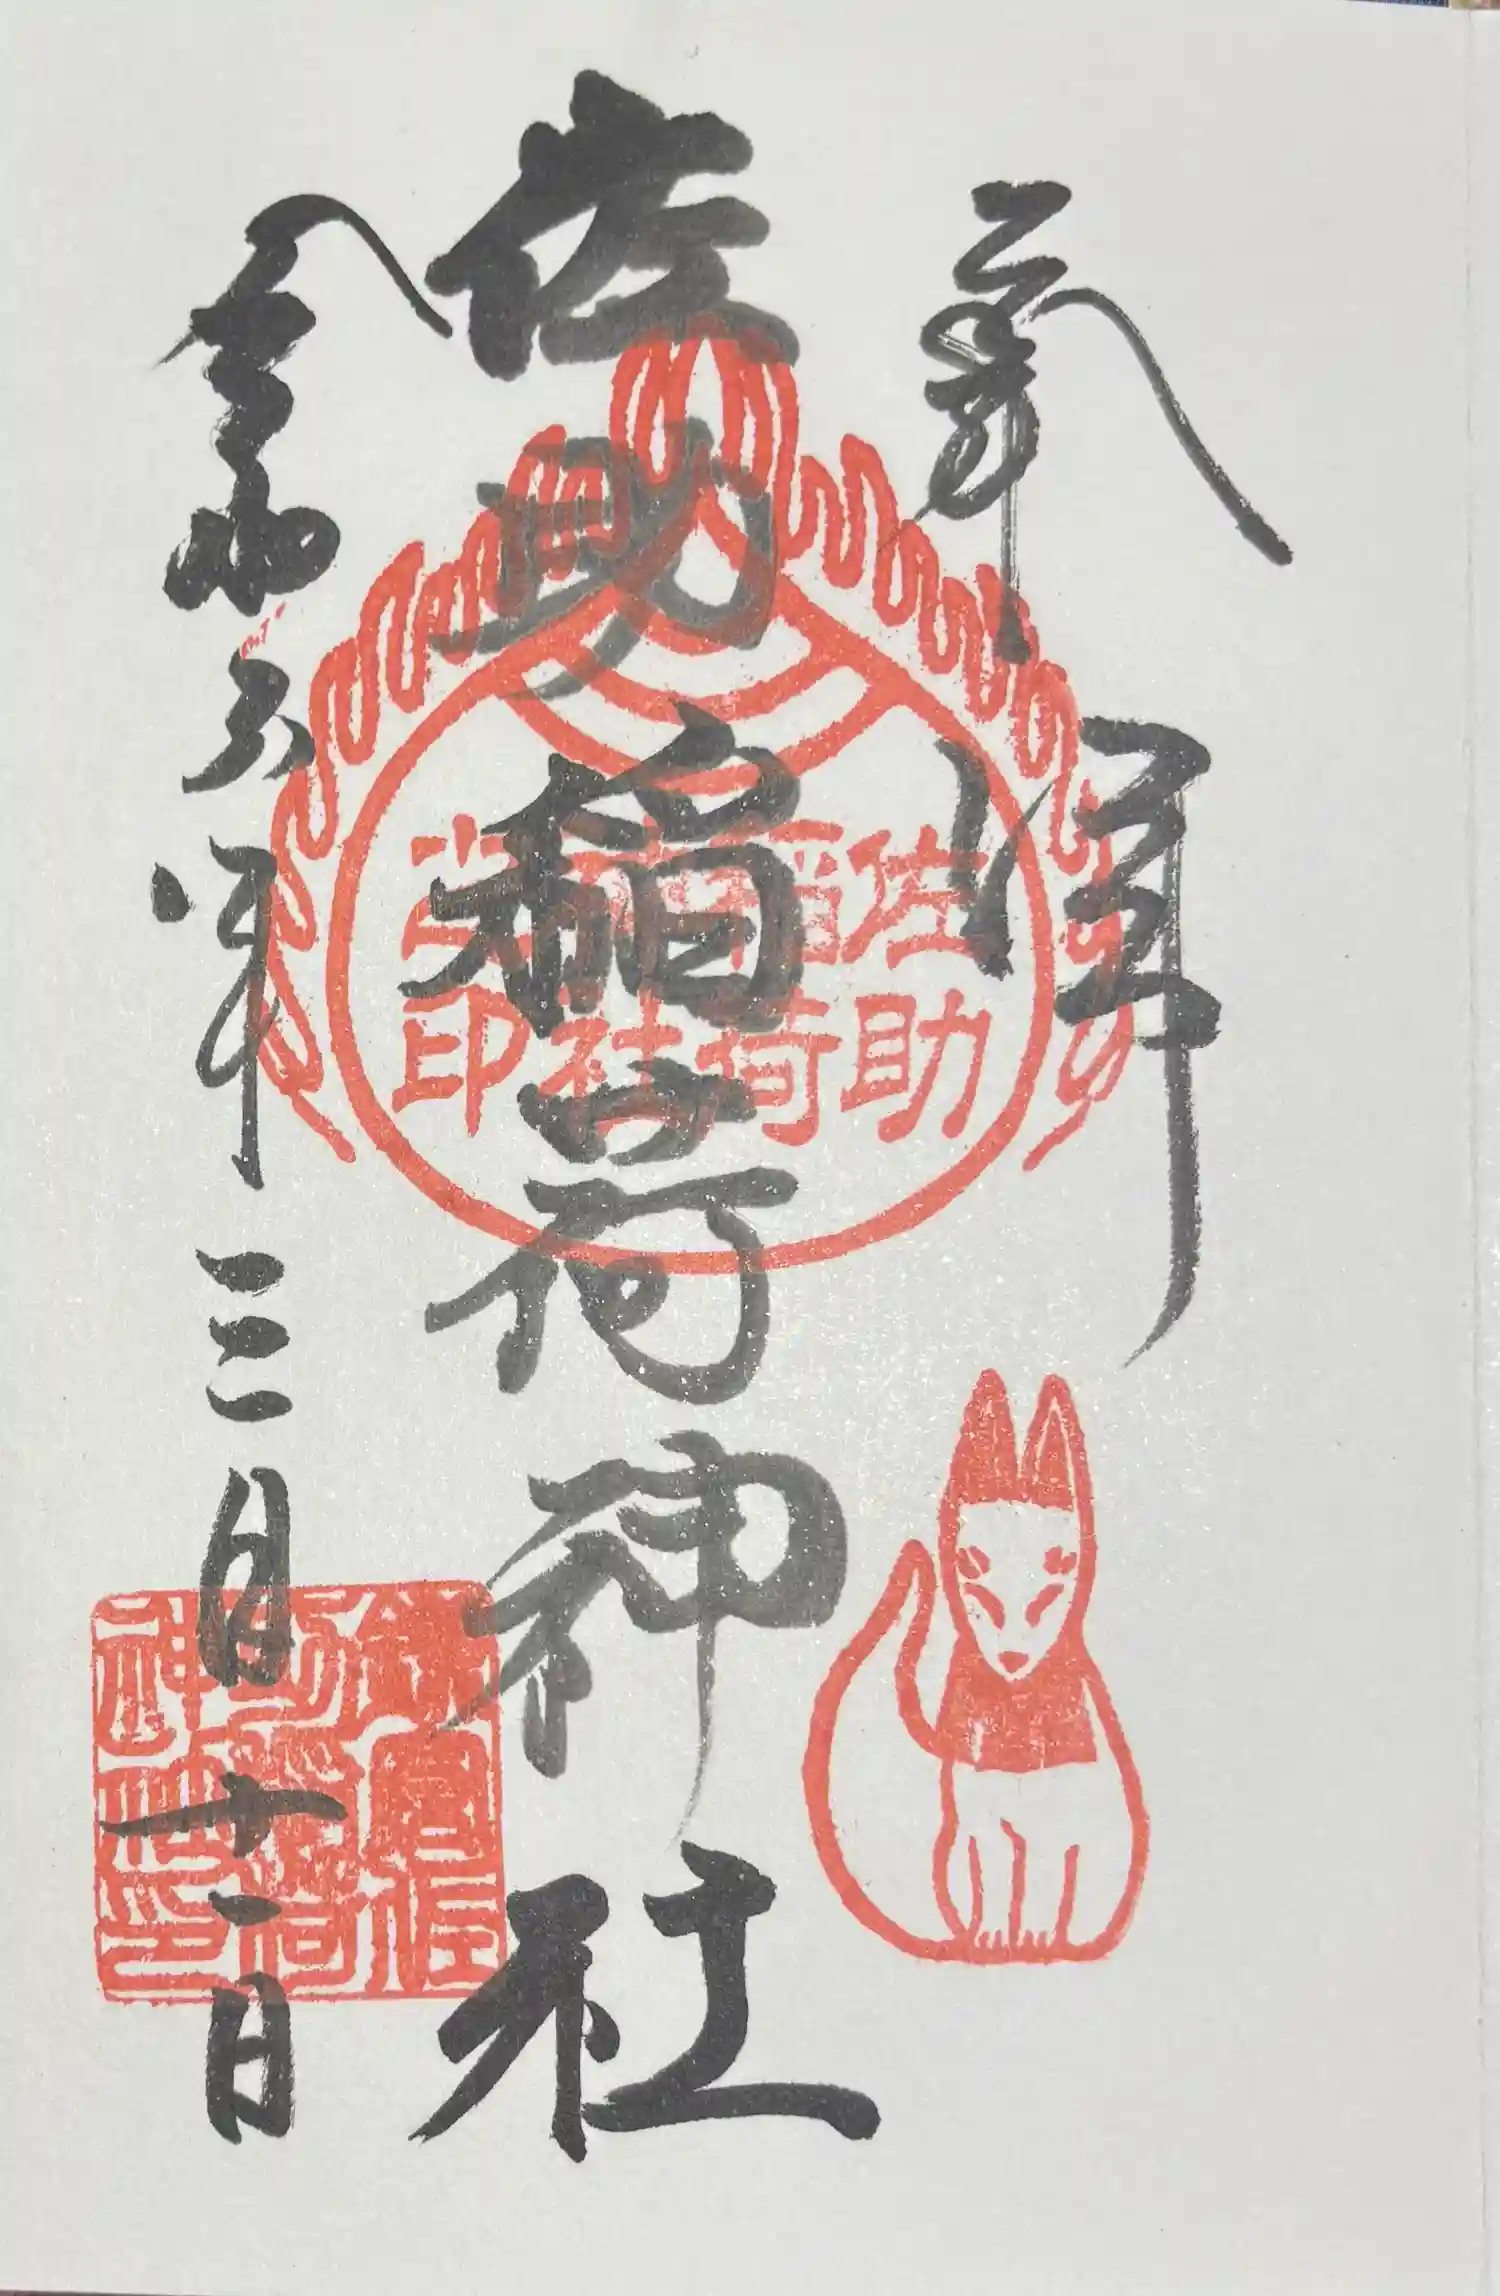 奉拝
佐助稲荷神社
令和六年三月十二日
佐助
稲荷
神社
之印
鎌倉佐
助稲荷
神社之印